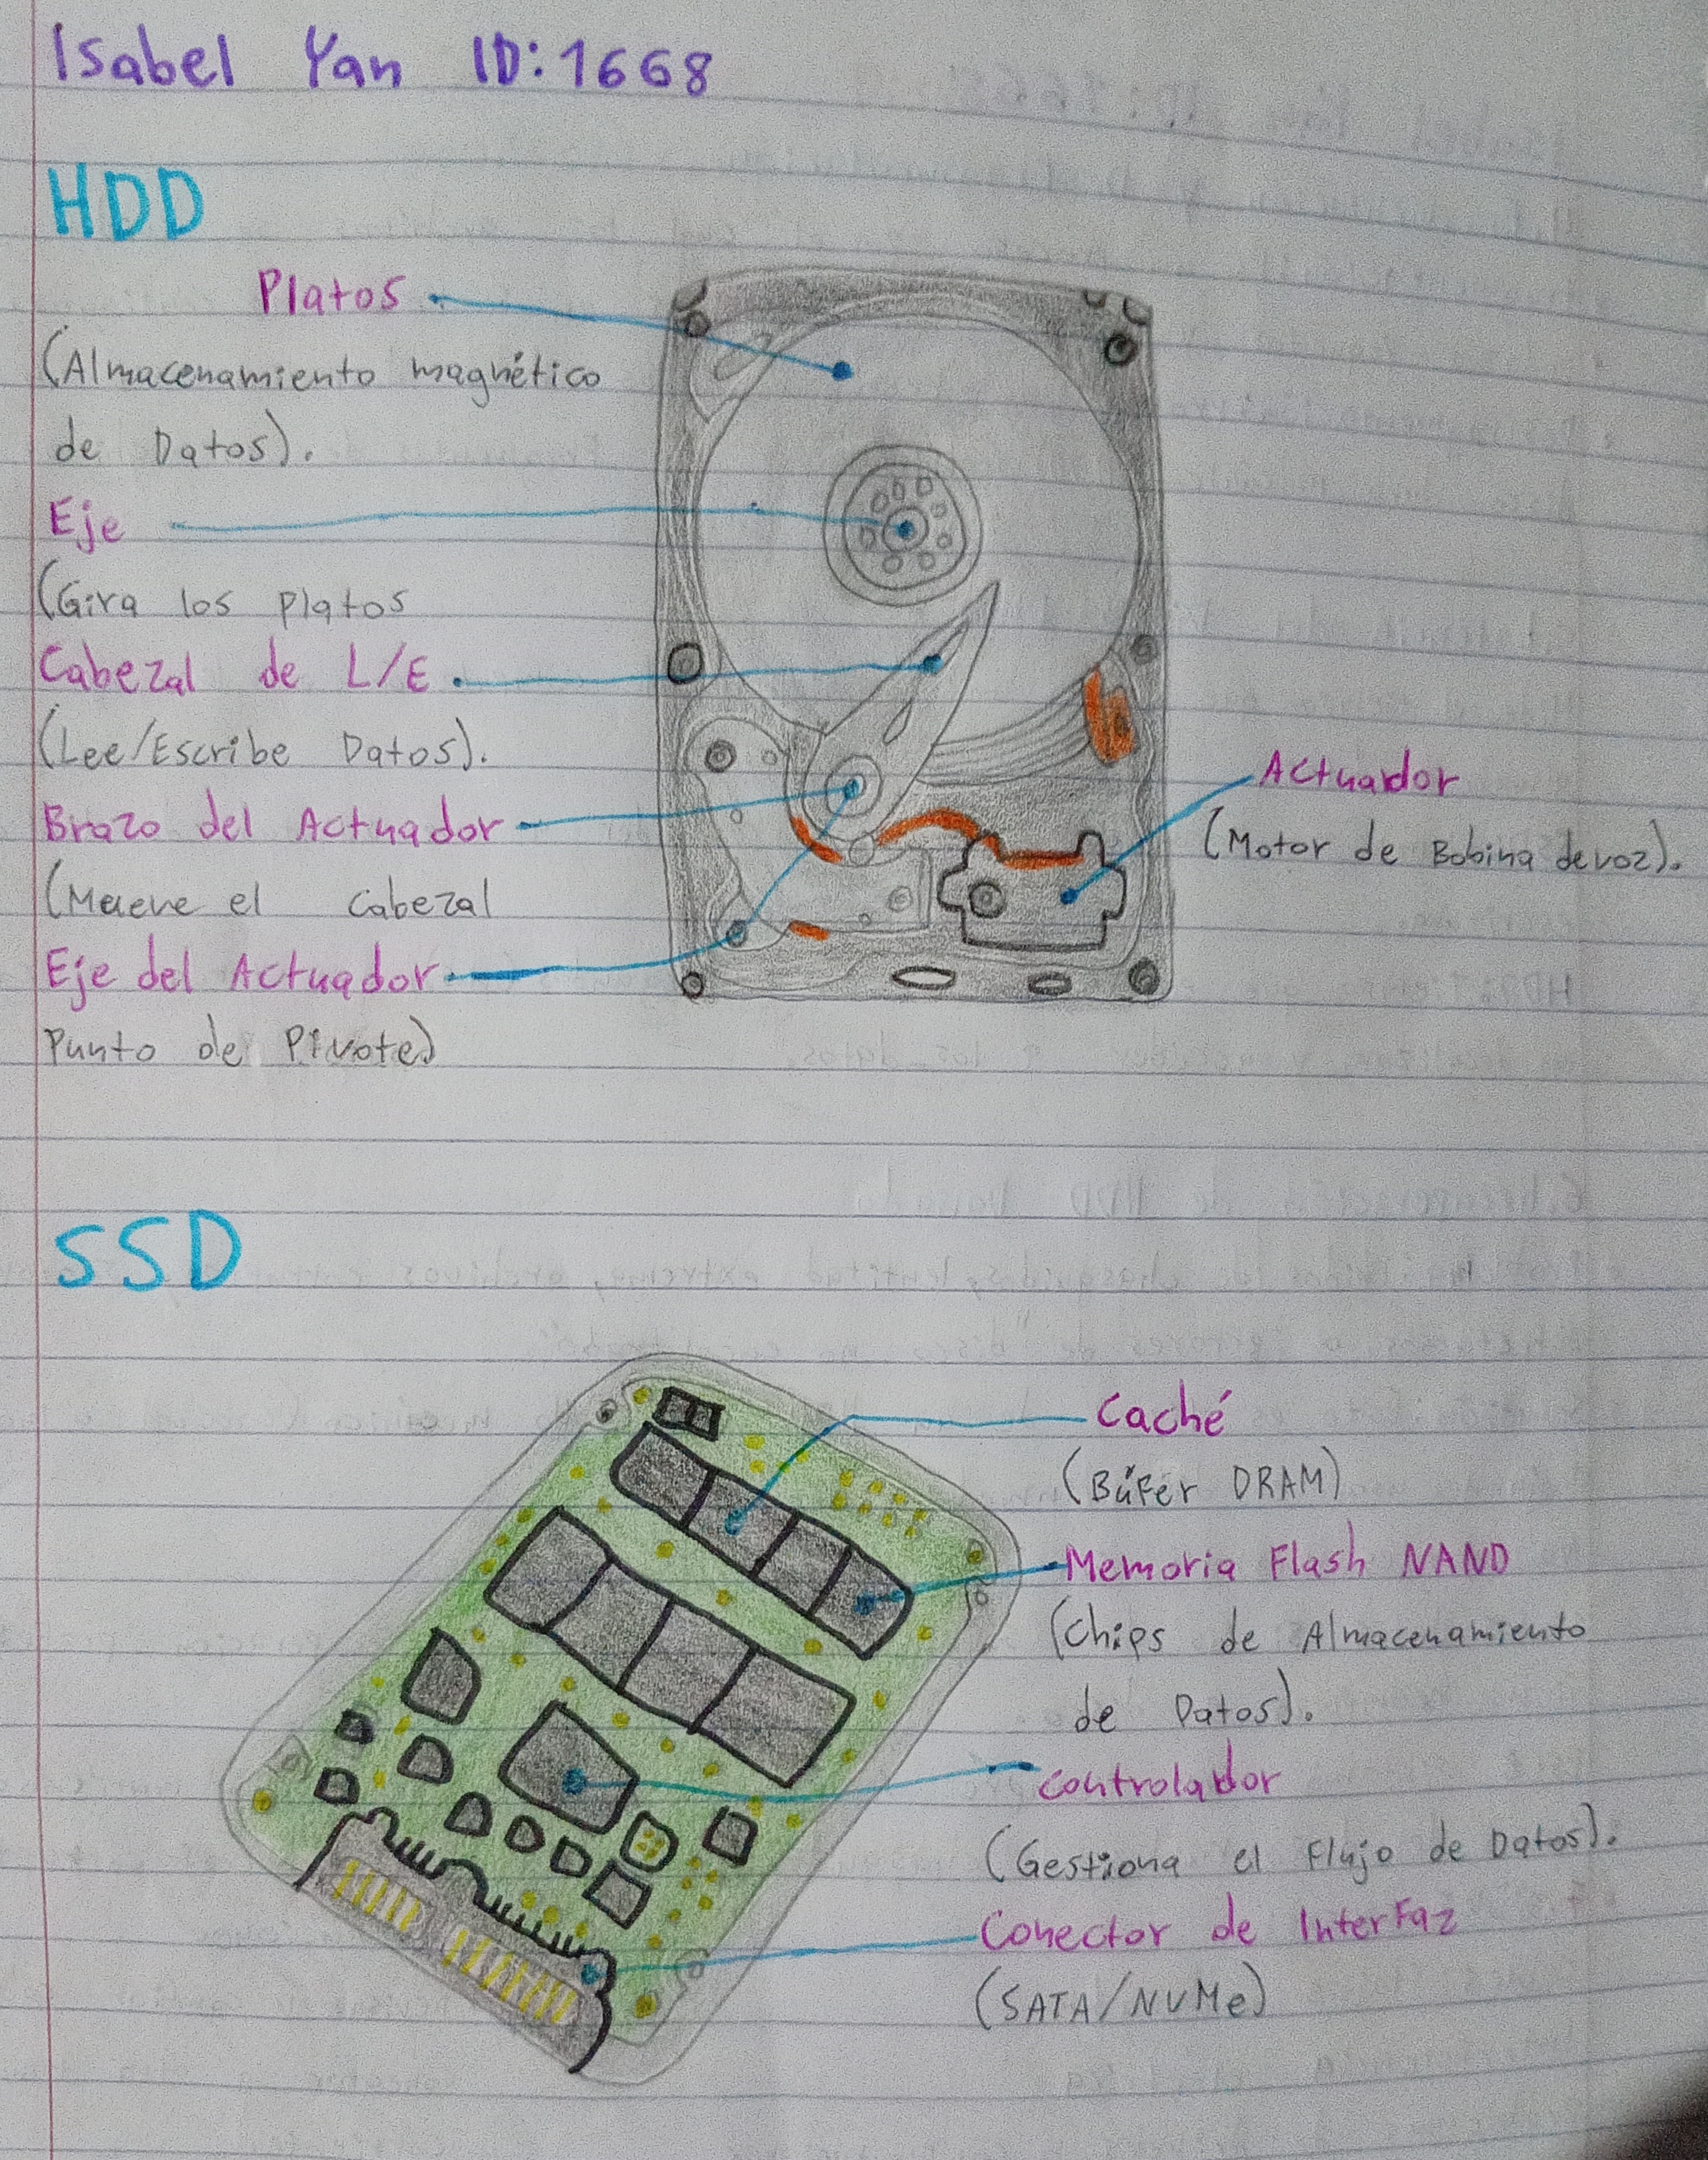 Isabel Yan ID: 1668
HDD
Platos
(Almacenamiento magnético
de Datos).
Eje
(Gira los platos
Cabezal de L/E
(Lee/Escribe Datos).
Brazo del Actuador
(Mueve el cabezal
Eje del Actuador
Punto de Pivote)
Actuador
(Motor de Bobina de voz).
SSD
Caché
(Búfer DRAM)
Memoria Flash NAND
(Chips de Almacenamiento
de Datos).
controlador
(Gestiona el Flujo de Datos).
Conector de InterFaz
(SATA/NVMe)